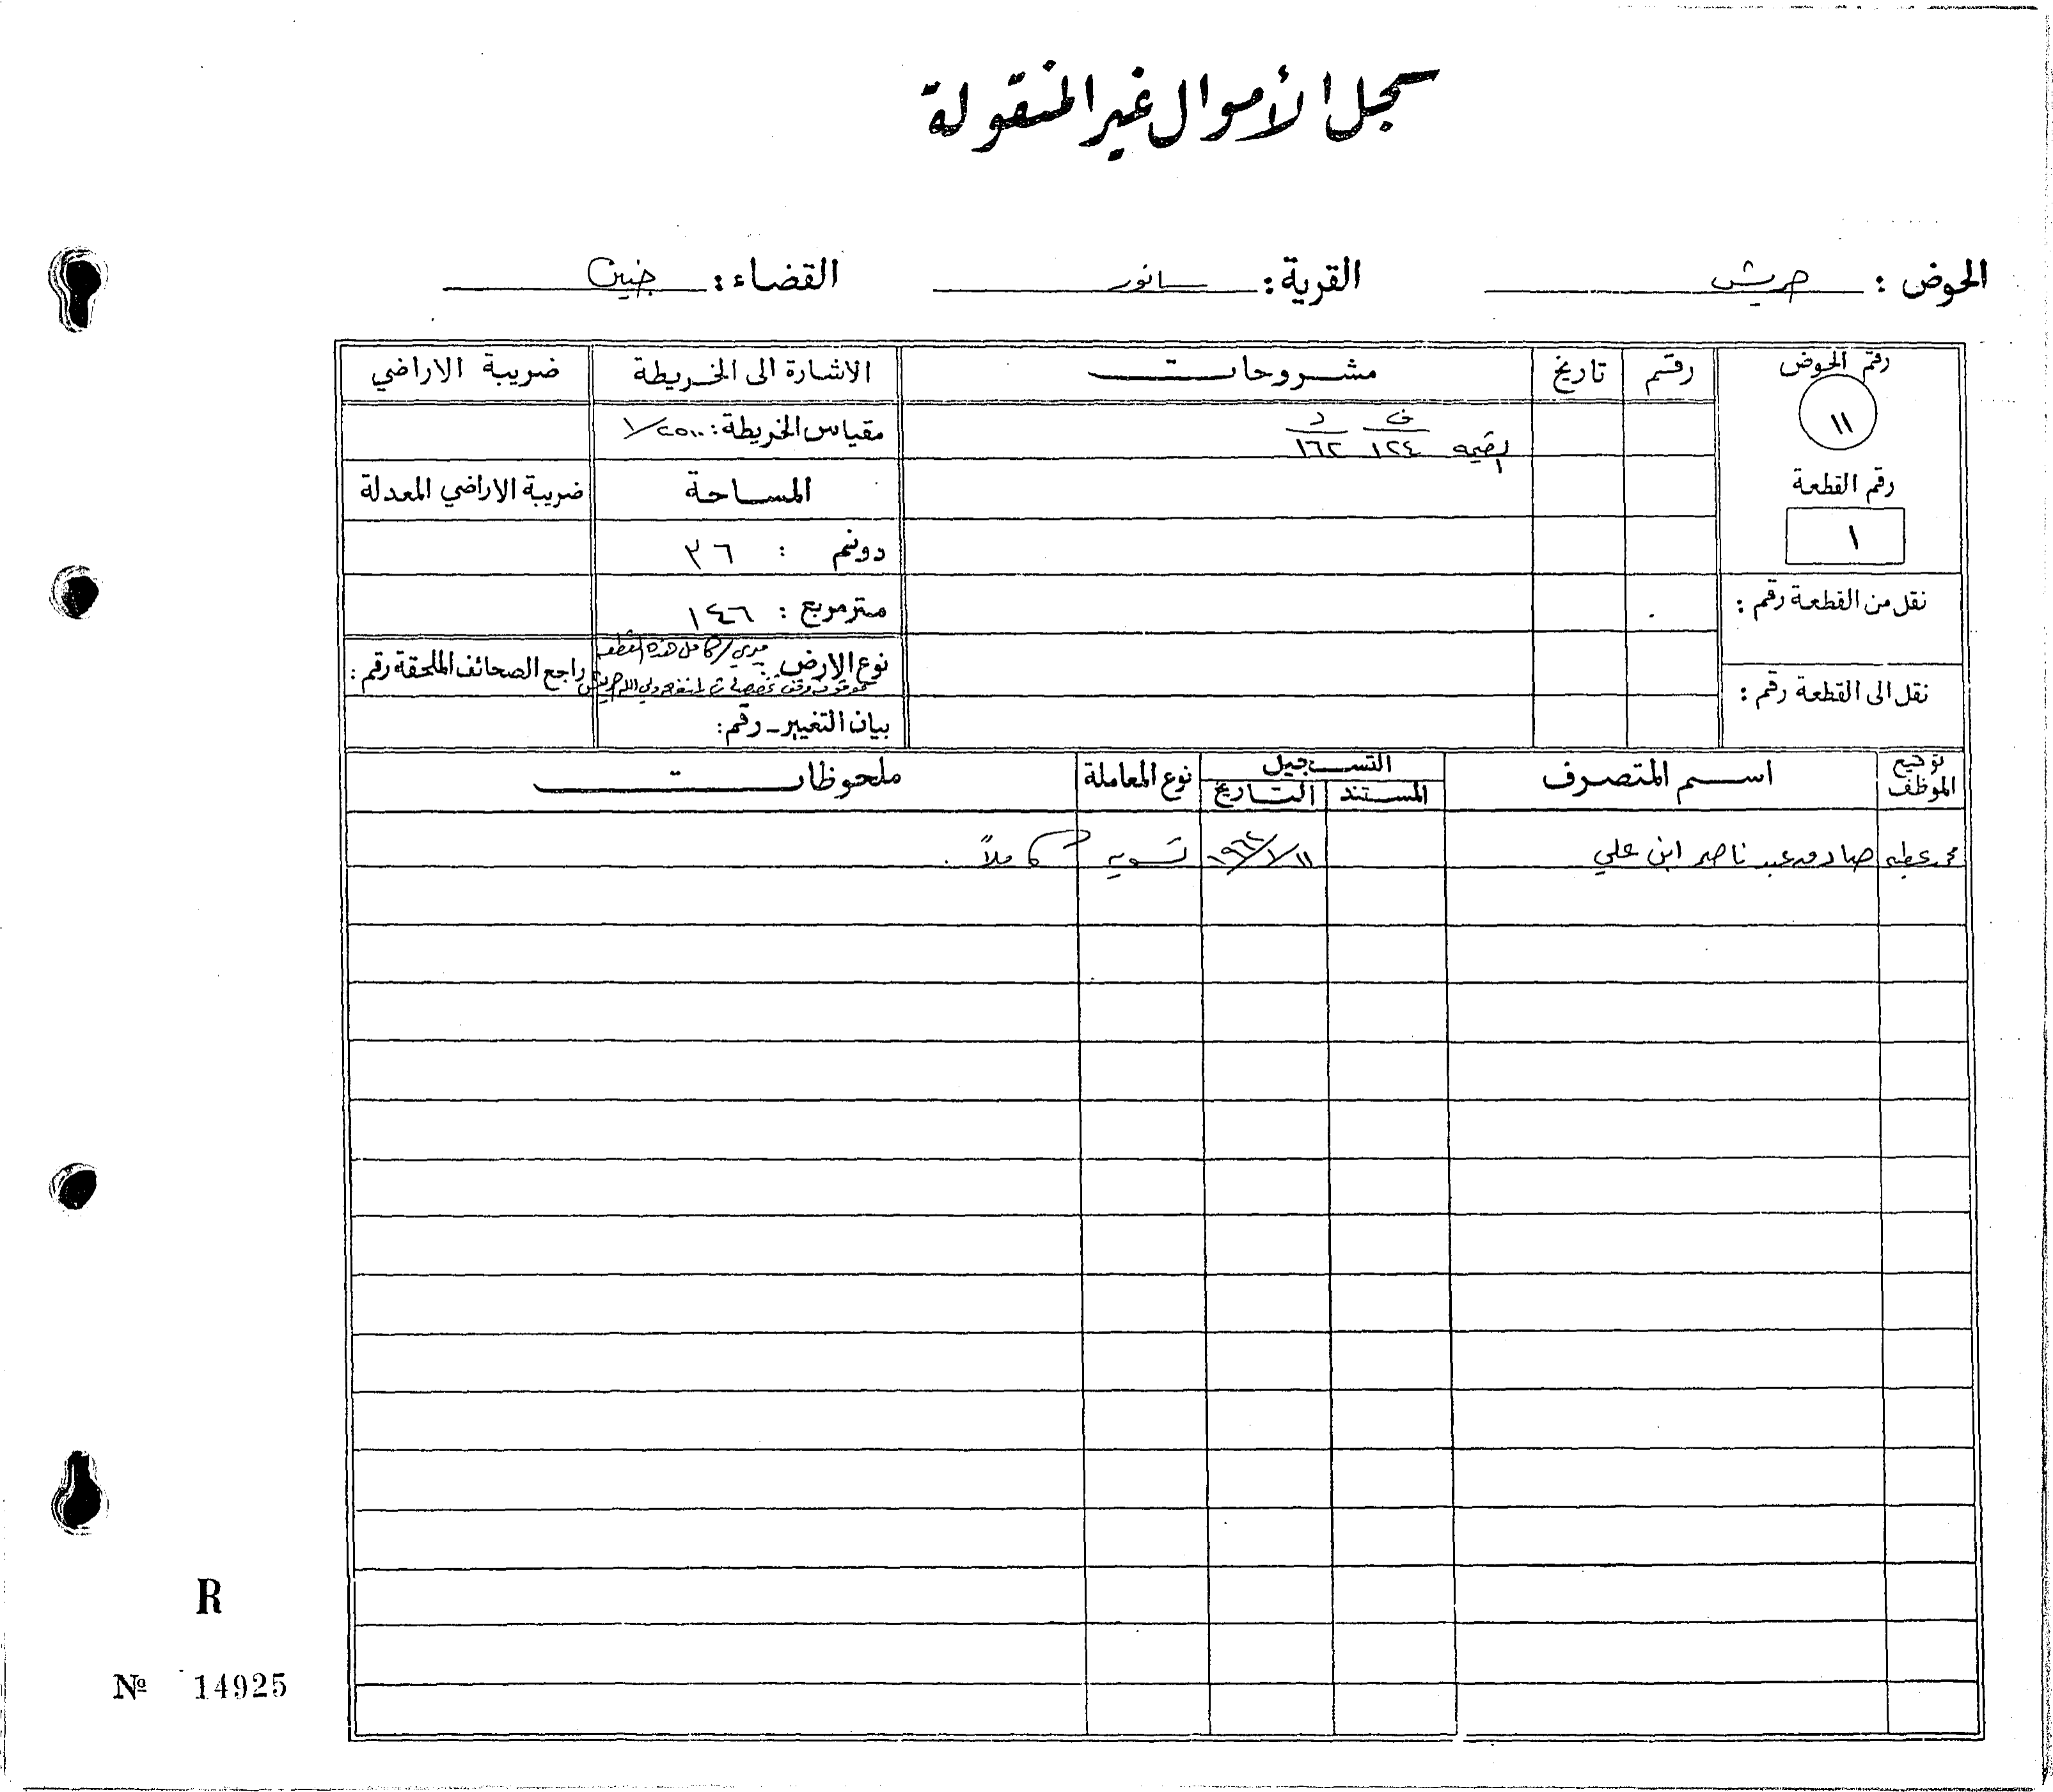 سجل الأموال غير المنقولة
الحوض : حريش القرية : سانور القضاء : جنين
رقم الحوض رقم تاريخ مشروحات الاشارة الى الخريطة ضريبة الاراضي
١١
ف د
القيمه ١٢٤ ١٦٢
مقياس الخريطة : ١/٢٥٠٠
رقم القطعة
المساحة ضريبة الاراضي المعدلة
١
دونم : ٣٦
متر مربع : ١٤٦
نقل من القطعة رقم :
نوع الارض ميري / كامل هذه القطعه
راجع الصحائف الملحقة رقم :
نقل الى القطعة رقم :
بيان التغيير - رقم :
توقيع الموظف اسم المتصرف التسجيل نوع المعاملة ملحوظات
المستند التاريخ
محمد عطيه صادق عبد ناصر ابن علي ١١/١/١٩٦٢ تسويه كاملاً .
R
№ 14925